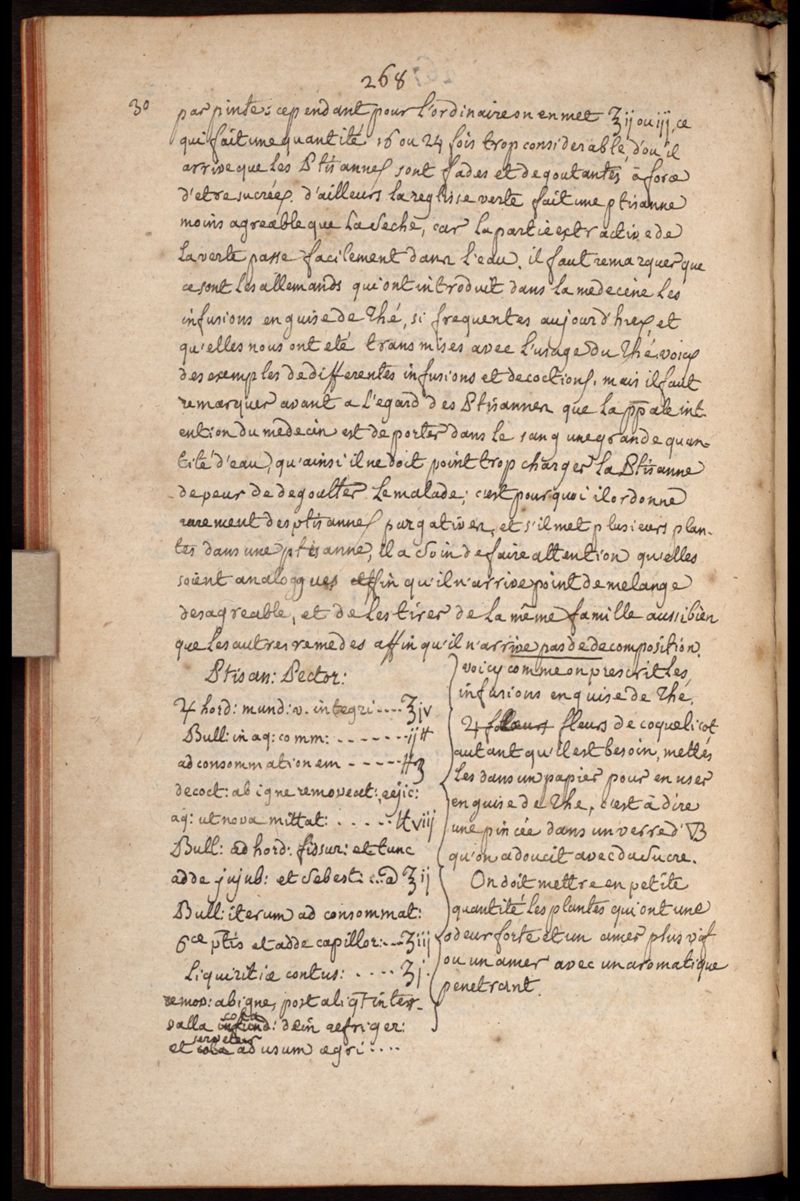 268
30
par pinte: cependant pour l'ordinaire on en met ʒij ou iij, ce
qui fait une quantité 16 ou 24 fois trop considerable, d'ou il
arrive que les Ptisannes sont fades et degoutantes à force
d'etre sucrées. d'ailleurs la reglise verte fait une ptisanne
moins agreable que la seche, car la partie extractive de
la verte passe facilement dans l'eau. il faut remarquer que
ce sont les allemands qui ont introduit dans la medecine les
infusions en guise de Thé, si frequentes aujourd'huy et
qu'elles nous ont eté transmises avec l'usage du Thé. voicy
des exemples de differentes infusions et decoctions, mais il faut
remarquer avant a l'egard des Ptisannes que la pp̃ale int
ention du medecin est de porter dans le sang une grande quan-
tité d'eau, qu'ainsi il ne doit point trop charger la Ptisanne
de peur de degoutter le malade; c'est pourquoi il ordonne
rarement des ptisannes purgatives, et s'il met plusieurs plan-
tes dans une ptisanne, il a soin de faire attention qu'elles
soient analoggues affin qu'il n'arrive point de melange
desagreable, et de les tirer de la même famille aussi bien
que les autres remedes affin qu'il n'arrive pas de decomposition.
Ptisan: Pector:
♃ hord: mund: v. integri .... ʒiv
Bull: in aq: comm: ....... ij ℔
ad consommationem -----℔
decoct: ab igne removeat: rejic:
aq: ut nova mittat: ..... ℔viij
Bull: ad hord: fissur: et tunc
adde jujub: et sebest: ãa ʒij
Bull: iterum ad consommat:
6ce ptis et adde capillor: --- ʒiij
Liquiritiæ contus: .... ʒj.
remov: ab igne, post aliq̃t inter-
valla cola: dein refriger:
et servetur ad usum ægri ....
voicy comme on prescrit les
infusions en guise de Thé.
♃ fleurs de coquelicot
autant qu'il est besoin, mettés
les dans un papier pour en user
en guise de The, c'est à dire
une pincée dans un verre d'▽B
qu'on adoucit avec du sucre.
On doit mettre en petite
quantité les plantes qui ont une
odeur forte et un amer plus vif
ou un amer avec un aromatique
penetrant.